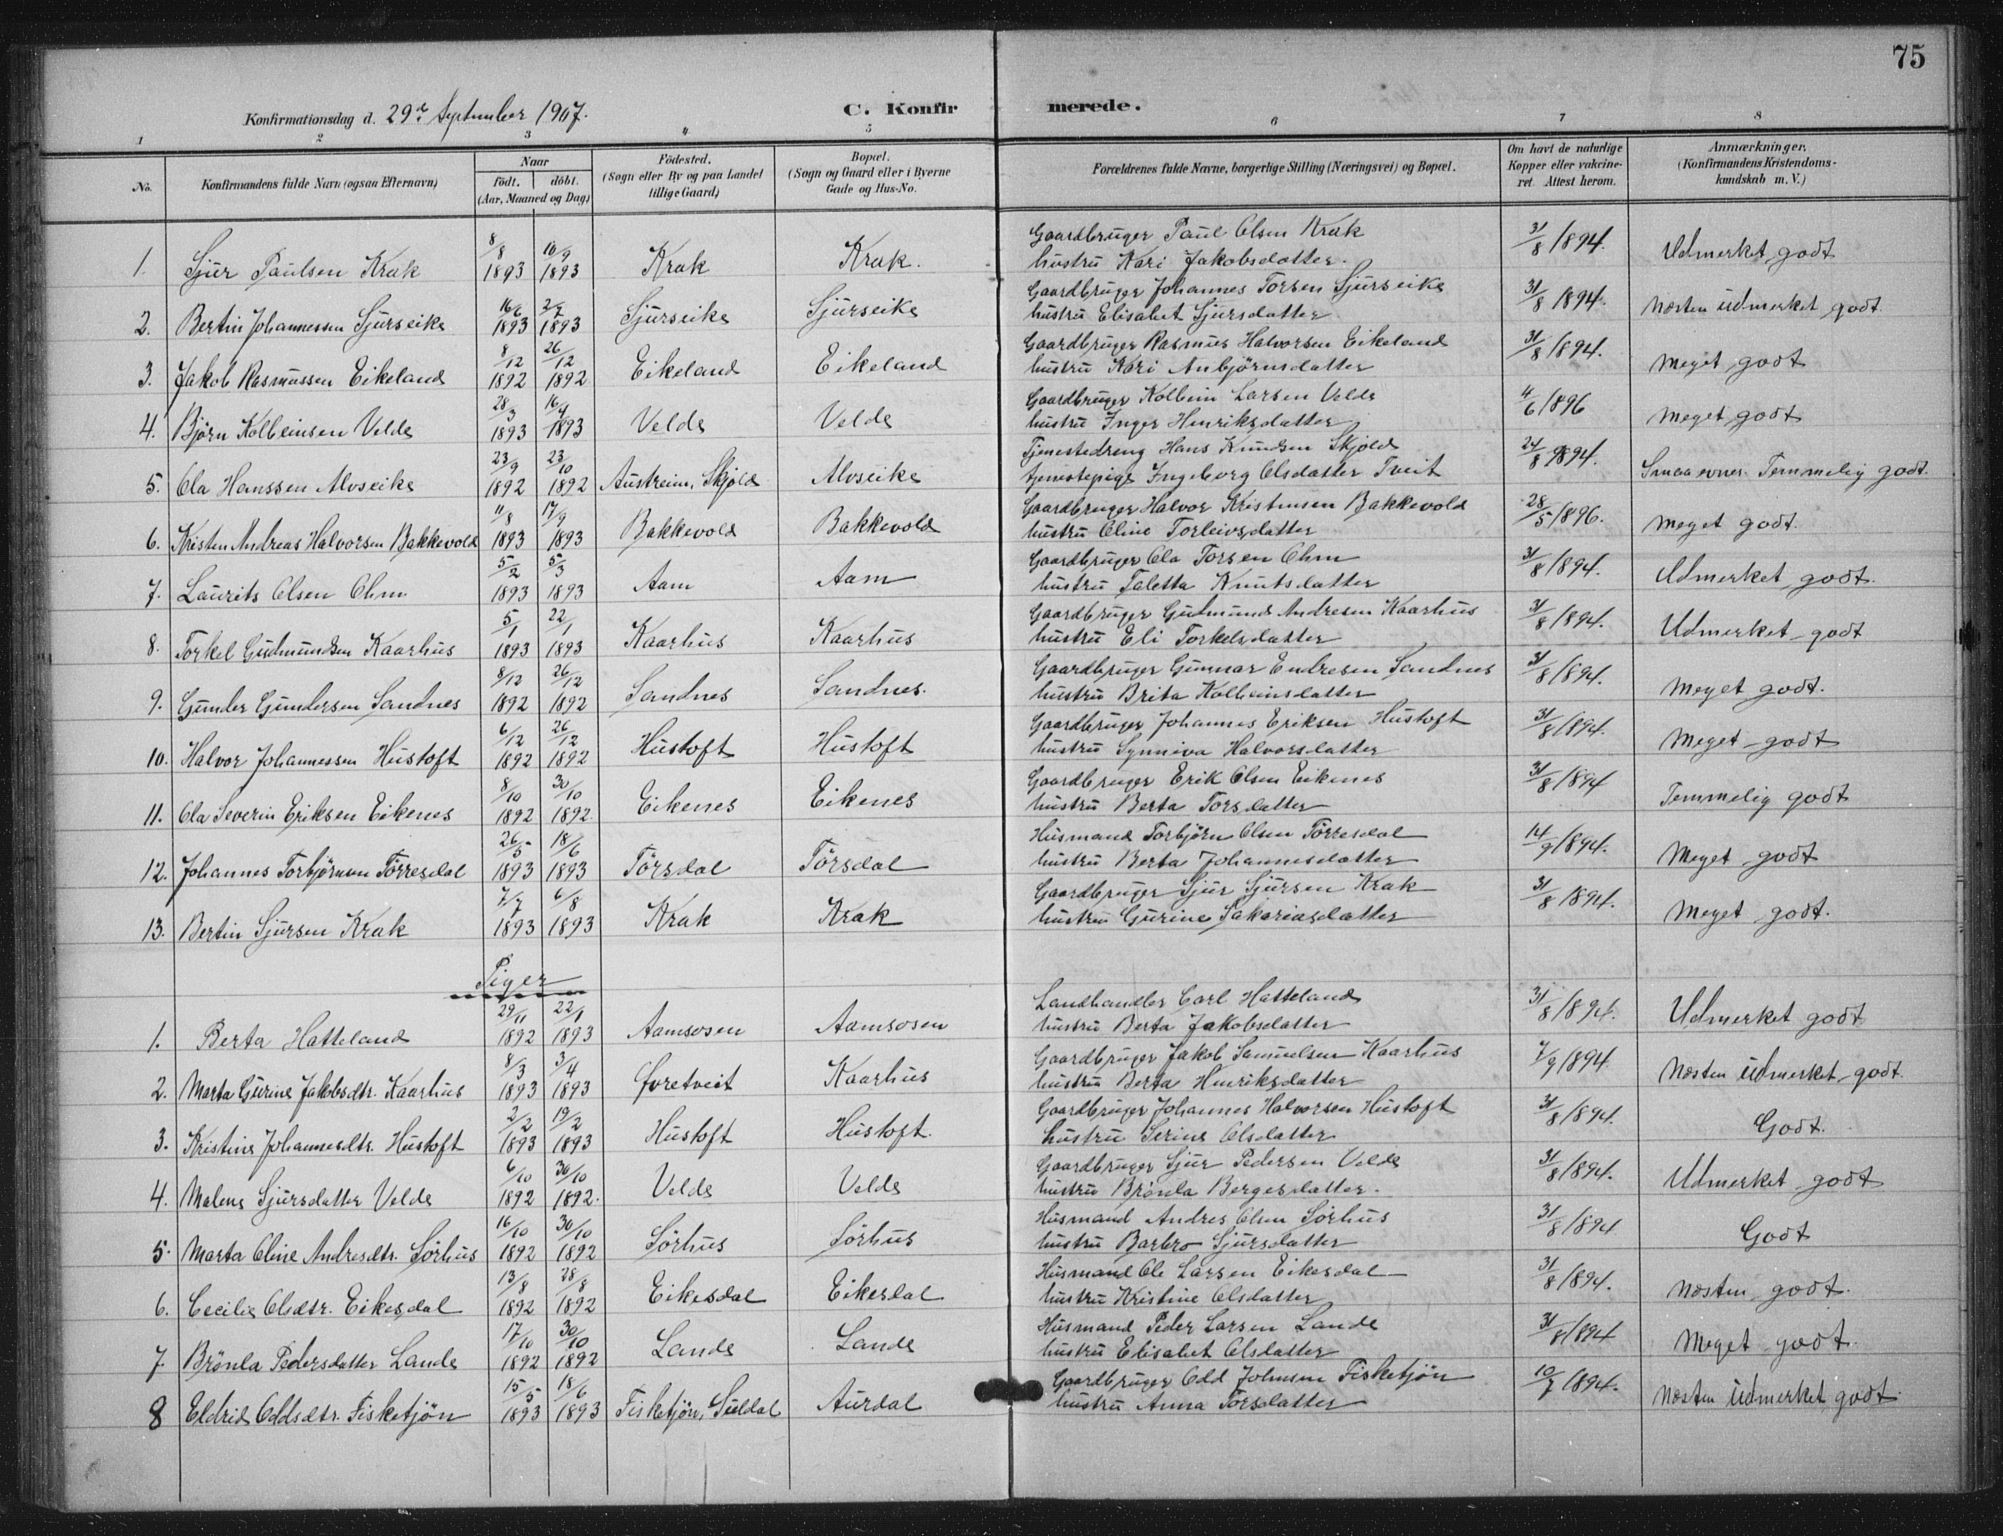 75
Konfirmationsdag d. 29de September 1907.
C. Konfirmerede.
1 2 3 4 5 6 7 8
No. Konfirmandens fulde Navn (ogsaa Efternavn) Naar født. døbt. (Aar, Maaned og Dag) Fødested. (Sogn eller By og paa Landet tillige Gaard) Bopæl. (Sogn og Gaard eller i Byerne Gade og Hus-No. Forældrenes fulde Navne, borgerlige Stilling (Næringsvei) og Bopæl. Om havt de naturlige Kopper eller vakcineret. Attest herom. Anmærkninger. (Konfirmandens Kristendomskundskab m. V.)
1. Sjur Paulsen Krak 8/8 1893 10/9 1893 Krak Krak. Gaardbruger Paul Olsen Krak hustru Kari Jakobsdatter. 31/8 1894. Udmerket godt
2. Bertin Johannessen Sjurseike 16/6 1893 2/7 1893 Sjurseike Sjurseike Gaardbruger Johannes Torsen Sjurseike hustru Elisabet Sjursdatter 31/8 1894. Næsten udmerket godt.
3. Jakob Rasmussen Eikeland 8/12 1892 26/12 1892 Eikeland Eikeland Gaardbruger Rasmus Halvorsen Eikeland hustru Kari Anbjørnsdatter 31/8 1894. Meget godt
4. Bjørn Kolbeinsen Velde 28/3 1893 16/4 1893 Velde Velde Gaardbruger Kolbein Larsen Velde hustru Inger Henriksdatter 4/6 1896 Meget godt
5. Ola Hanssen Alvseike 23/9 1892 23/10 1892 Austreim, Skjold Alvseike Tjenestedreng Hans Knudsen Skjold tjenestepige Ingeborg Olsdatter Tveit 24/8 1894. Smaa evner. Temmelig godt.
6. Kristen Andreas Halvorsen Bakkevold 11/8 1893 17/9 1893 Bakkevold Bakkevold Gaardbruger Halvor Kristensen Bakkevold hustru Oline Torleivsdatter 28/5 1896. Meget godt.
7. Laurits Olsen Ohm 5/2 1893 5/3 1893 Aam Aam Gaardbruger Ola Torsen Ohm hustru Taletta Knutsdatter 31/8 1894. Udmerket godt.
8. Torkel Gudmundsen Kaarhus 5/1 1893 22/1 1893 Kaarhus Kaarhus Gaardbruger Gudmund Andresen Kaarhus hustru Eli Torkelsdatter 31/8 1894. Udmerket godt
9. Gunder Gundersen Sandnes 8/12 1892 26/12 1892 Sandnes Sandnes. Gaardbruger Gunnar Endresen Sandnes hustru Brita Kolbeinsdatter 31/8 1894. Meget godt.
10. Halvor Johannessen Hustoft 6/12 1892 26/12 1892 Hustoft Hustoft Gaardbruger Johannes Eriksen Hustoft hustru Synniva Halvorsdatter 31/8 1894. Meget godt
11. Ola Severin Eriksen Eikenes 8/10 1892 30/10 1892. Eikenes Eikenes Gaardbruger Erik Olsen Eikenes hustru Berta Torsdatter 31/8 1894 Temmelig godt
12. Johannes Torbjørnsen Tørresdal 26/5 1893 18/6 1893 Tørsdal Tørsdal Husmand Torbjørn Olsen Tørresdal hustru Berta Johannesdatter 14/9 1894. Meget godt
13. Bertin Sjursen Krak 7/7 1893 6/8 1893 Krak Krak Gaardbruger Sjur Sjursen Krak hustru Gurine Sakariasdatter 31/8 1894. Meget godt.
Piger
1. Berta Hatteland 29/11 1892 22/1 1893 Aamsosen Aamsosen Landhandler Carl Hatteland hustru Berta Jakobsdatter 31/8 1894. Udmerket godt
2. Marta Gurine Jakobsdtr. Kaarhus 8/3 1893 3/4 1893 Øvretveit Kaarhus Gaardbruger Jakob Samuelsen Kaarhus hustru Berta Henriksdatter 7/9 1894 Næsten udmerket godt.
3. Kristine Johannesdtr. Hustoft 2/2 1893 19/2 1893 Hustoft Hustoft. Gaardbruger Johannes Halvorsen Hustoft hustru Serine Olsdatter 31/8 1894. Godt.
4. Malene Sjursdatter Velde 6/10 1892 30/10 1892. Velde Velde Gaardbruger Sjur Pedersen Velde hustru Brønla Bergesdatter. 31/8 1894. Udmerket godt
5. Marta Oline Andresdtr. Sørhus 16/10 1892 30/10 1892 Sørhus Sørhus Husmand Andres Olsen Sørhus hustru Barbro Sjursdatter 31/8 1894 Godt
6. Cecilie Olsdtr. Eikesdal 13/8 1892 28/8 1892 Eikesdal Eikesdal Husmand Ole Larsen Eikesdal hustru Kristine Olsdatter 31/8 1894. Næsten godt.
7. Brønla Pedersdatter Lande 17/10 1892 30/10 1892 Lande Lande Husmand Peder Larsen Lande hustru Elisabet Olsdatter 31/8 1894 Meget godt.
8 Eldrid Oddsdtr. Fisketjøn 15/5 1893 18/6 1893 Fisketjøn, Suldal Aurdal Gaardbruger Odd Johnsen Fisketjøn hustru Anna Torsdatter 10/7 1894. Næsten udmerket godt